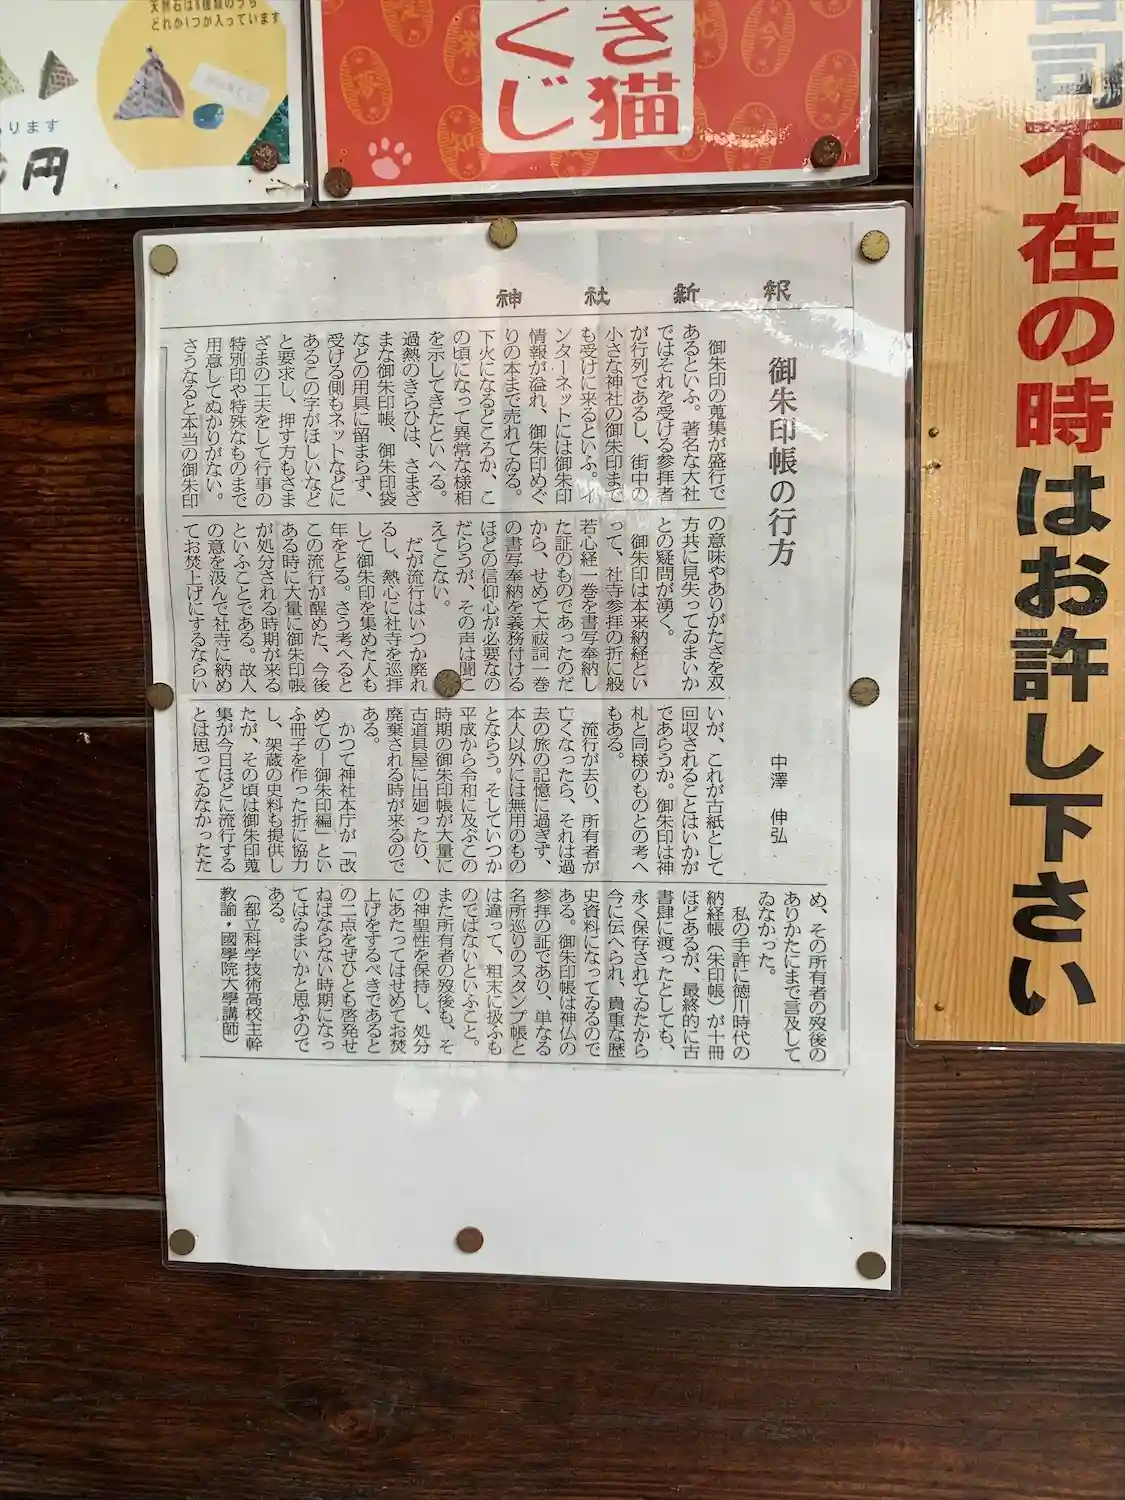 天然石は8種類のうち
どれか1つが入っています
ります
円
き猫
くじ
司不在の時はお許し下さい
神社新報
御朱印帳の行方
中澤 伸弘
御朱印の蒐集が盛行で
あるといふ。著名な大社
ではそれを受ける参拝者
が行列であるし、街中の
小さな神社の御朱印まで
も受けに来るといふ。イ
ンターネットには御朱印
情報が溢れ、御朱印めぐ
りの本まで売れてゐる。
下火になるどころか、こ
の頃になって異常な様相
を示してきたといへる。
過熱のきらひは、さまざ
まな御朱印帳、御朱印袋
などの用具に留まらず、
受ける側もネットなどに
あるこの字がほしいなど
と要求し、押す方もさま
ざまの工夫をして行事の
特別印や特殊なものまで
用意してぬかりがない。
さうなると本当の御朱印
の意味やありがたさを双
方共に見失ってゐまいか
との疑問が湧く。
御朱印は本来納経とい
って、社寺参拝の折に般
若心経一巻を書写奉納し
た証のものであったのだ
から、せめて大祓詞一巻
の書写奉納を義務付ける
ほどの信仰心が必要なの
だらうが、その声は聞こ
えてこない。
だが流行はいつか廃れ
るし、熱心に社寺を巡拝
して御朱印を集めた人も
年をとる。さう考へると
この流行が醒めた、今後
ある時に大量に御朱印帳
が処分される時期が来る
といふことである。故人
の意を汲んで社寺に納め
てお焚上げにするならい
いが、これが古紙として
回収されることはいかが
であらうか。御朱印は神
札と同様のものとの考へ
もある。
流行が去り、所有者が
亡くなったら、それは過
去の旅の記憶に過ぎず、
本人以外には無用のもの
とならう。そしていつか
平成から令和に及ぶこの
時期の御朱印帳が大量に
古道具屋に出廻ったり、
廃棄される時が来るので
ある。
かつて神社本庁が「改
めての―御朱印編」とい
ふ冊子を作った折に協力
し、架蔵の史料も提供し
たが、その頃は御朱印蒐
集が今日ほどに流行する
とは思ってゐなかったた
め、その所有者の歿後の
ありかたにまで言及して
ゐなかった。
私の手許に徳川時代の
納経帳（朱印帳）が十冊
ほどあるが、最終的に古
書肆に渡ったとしても、
永く保存されてゐたから
今に伝へられ、貴重な歴
史資料になってゐるので
ある。御朱印帳は神仏の
参拝の証であり、単なる
名所巡りのスタンプ帳と
は違って、粗末に扱ふも
のではないといふこと。
また所有者の歿後も、そ
の神聖性を保持し、処分
にあたってはせめてお焚
上げをするべきであると
の二点をぜひとも啓発せ
ねばならない時期になっ
てはゐまいかと思ふので
ある。
（都立科学技術高校主幹
教諭・國學院大學講師）